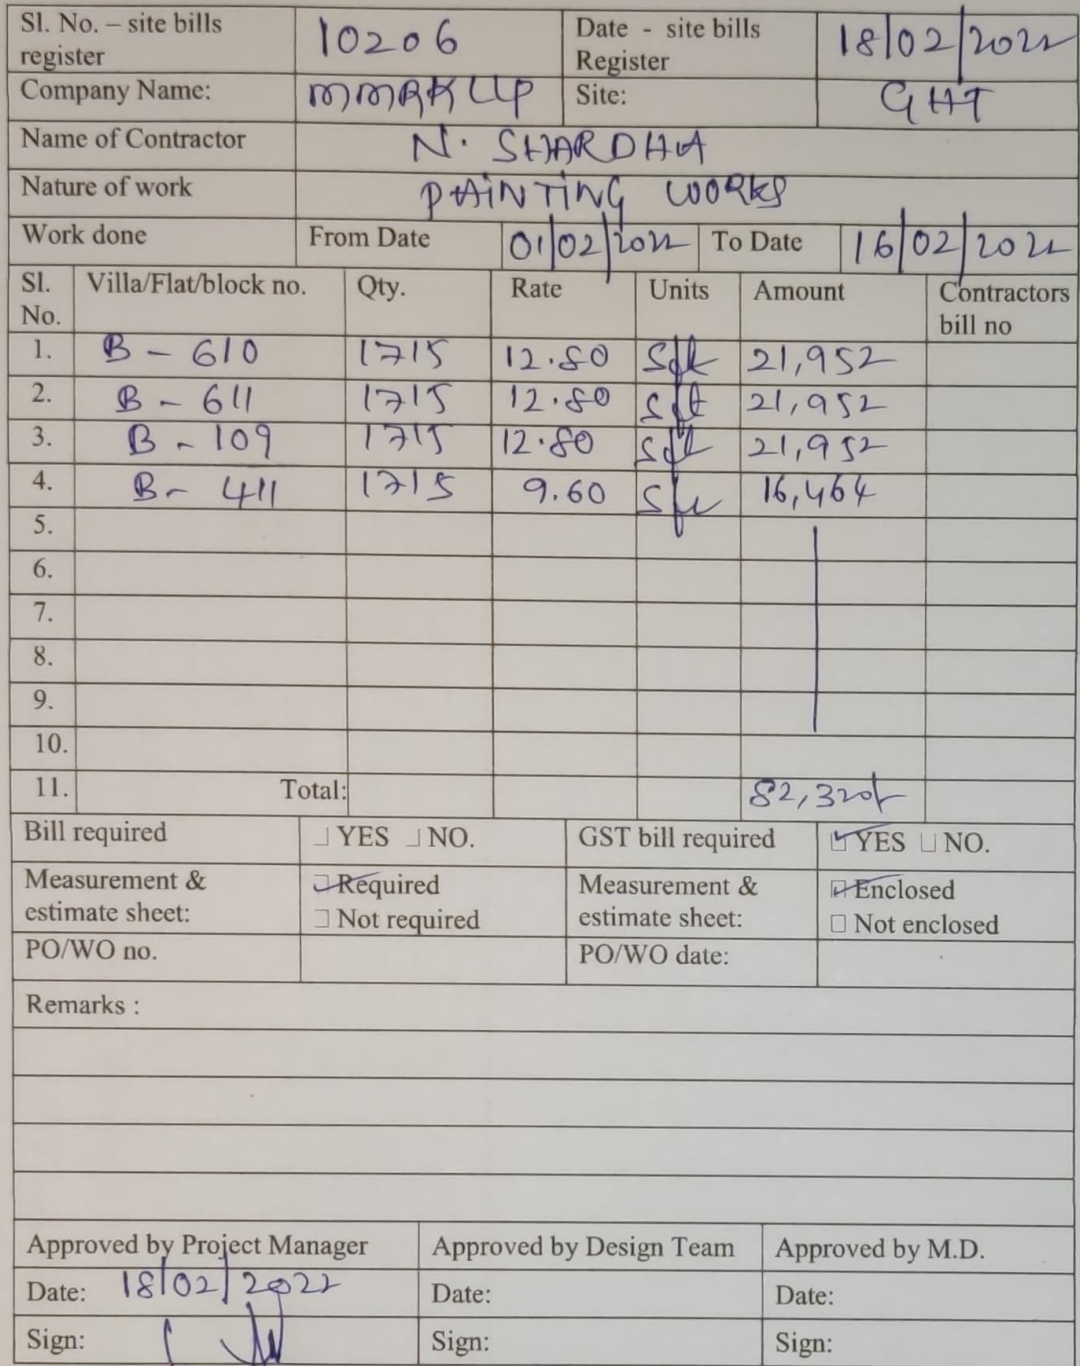 Sl. No. – site bills register 10206 Date - site bills Register 18/02/2022
Company Name: MMRK LLP Site: GHT
Name of Contractor N. SHARDHA
Nature of work PAINTING WORKS
Work done From Date 01/02/2022 To Date 16/02/2022
Sl. No. Villa/Flat/block no. Qty. Rate Units Amount Contractors bill no
1. B - 610 1715 12.80 Sft 21,952
2. B - 611 1715 12.80 Sft 21,952
3. B - 109 1715 12.80 Sft 21,952
4. B - 411 1715 9.60 Sft 16,464
5.
6.
7.
8.
9.
10.
11. Total: 82,320/-
Bill required YES NO. GST bill required YES NO.
Measurement & estimate sheet: Required Not required Measurement & estimate sheet: Enclosed Not enclosed
PO/WO no. PO/WO date:
Remarks :
Approved by Project Manager Approved by Design Team Approved by M.D.
Date: 18/02/2022 Date: Date:
Sign: Sign: Sign: